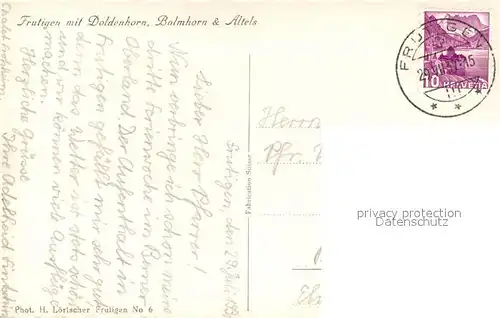 Frutigen mit Doldenhorn, Balmhorn & Altels
Frutigen, den 29. Juli
Lieber Herr Pfarrer!
Nun verbringe ich schon meine
dritte Ferienwoche im Berner
Oberland. Der Aufenthalt in
Frutigen gefällt mir sehr gut
denn das Wetter ist stets schön
und wir können viele Ausflüge
machen.
Herzliche Grüsse
Ihre Adelheid
Fabrikation Suisse
Phot. H. Lörtscher Frutigen No 6
FRUTIGEN
10 HELVETIA
Herrn
Pfr.
privacy protection
AnsichtskartenVersand.com